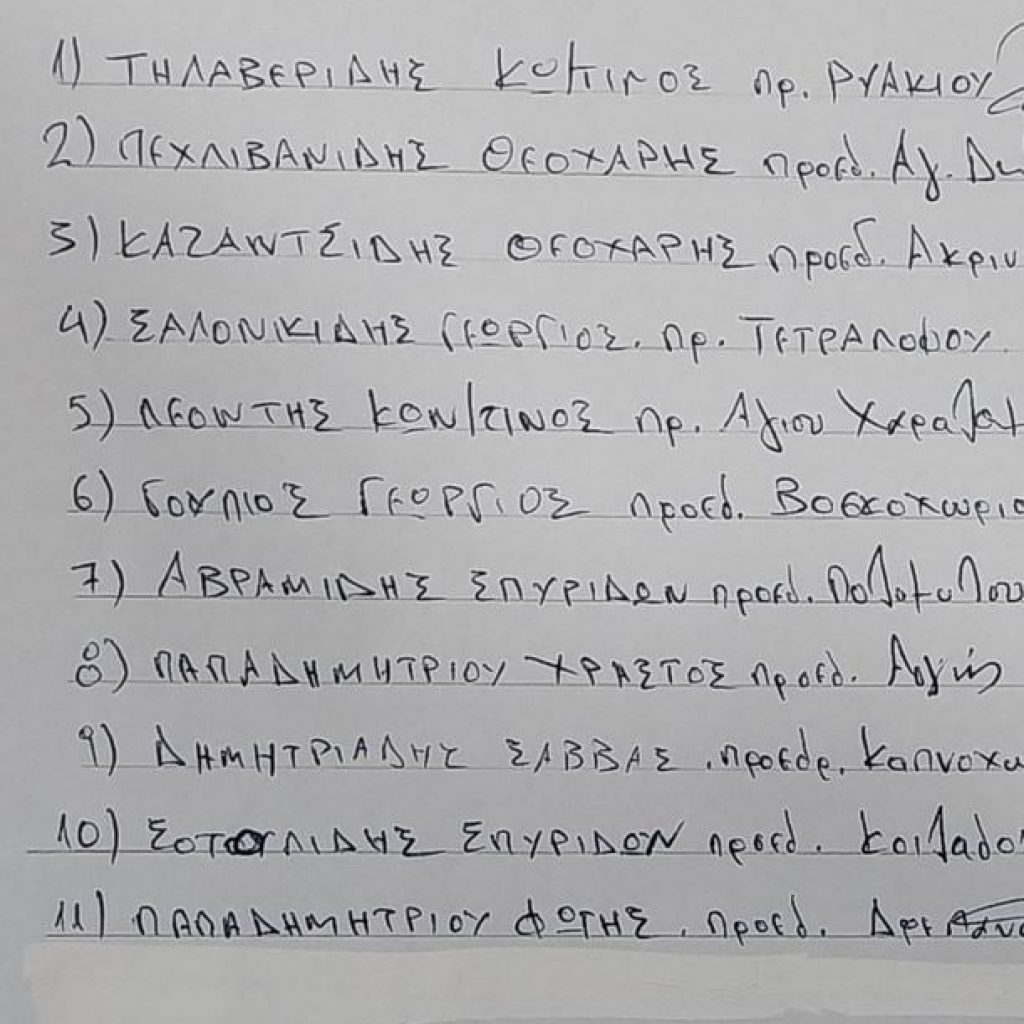 1) ΤΗΛΑΒΕΡΙΔΗΣ ΚΩ/ΤΙΝΟΣ πρ. ΡΥΑΚΙΟΥ
2) ΠΕΧΛΙΒΑΝΙΔΗΣ ΘΕΟΧΑΡΗΣ προεδ. Αγ. Δη
3) ΚΑΖΑΝΤΣΙΔΗΣ ΘΕΟΧΑΡΗΣ προεδ. Ακριν
4) ΣΑΛΟΝΙΚΙΔΗΣ ΓΕΩΡΓΙΟΣ. πρ. ΤΕΤΡΑΛΟΦΟΥ
5) ΛΕΟΝΤΗΣ ΚΩΝ/ΤΙΝΟΣ πρ. Αγιου Χαραλα
6) ΓΟΥΠΙΟΣ ΓΕΩΡΓΙΟΣ προεδ. Βοσκοχωριο
7) ΑΒΡΑΜΙΔΗΣ ΣΠΥΡΙΔΩΝ προεδ.
8) ΠΑΠΑΔΗΜΗΤΡΙΟΥ ΧΡΗΣΤΟΣ προεδ.
9) ΔΗΜΗΤΡΙΑΔΗΣ ΣΑΒΒΑΣ . προεδρ. Καπνοχω
10) ΣΠΥΡΙΔΩΝ προεδ. Κοιλαδο
11) ΠΑΠΑΔΗΜΗΤΡΙΟΥ ΦΩΤΗΣ . προεδ.